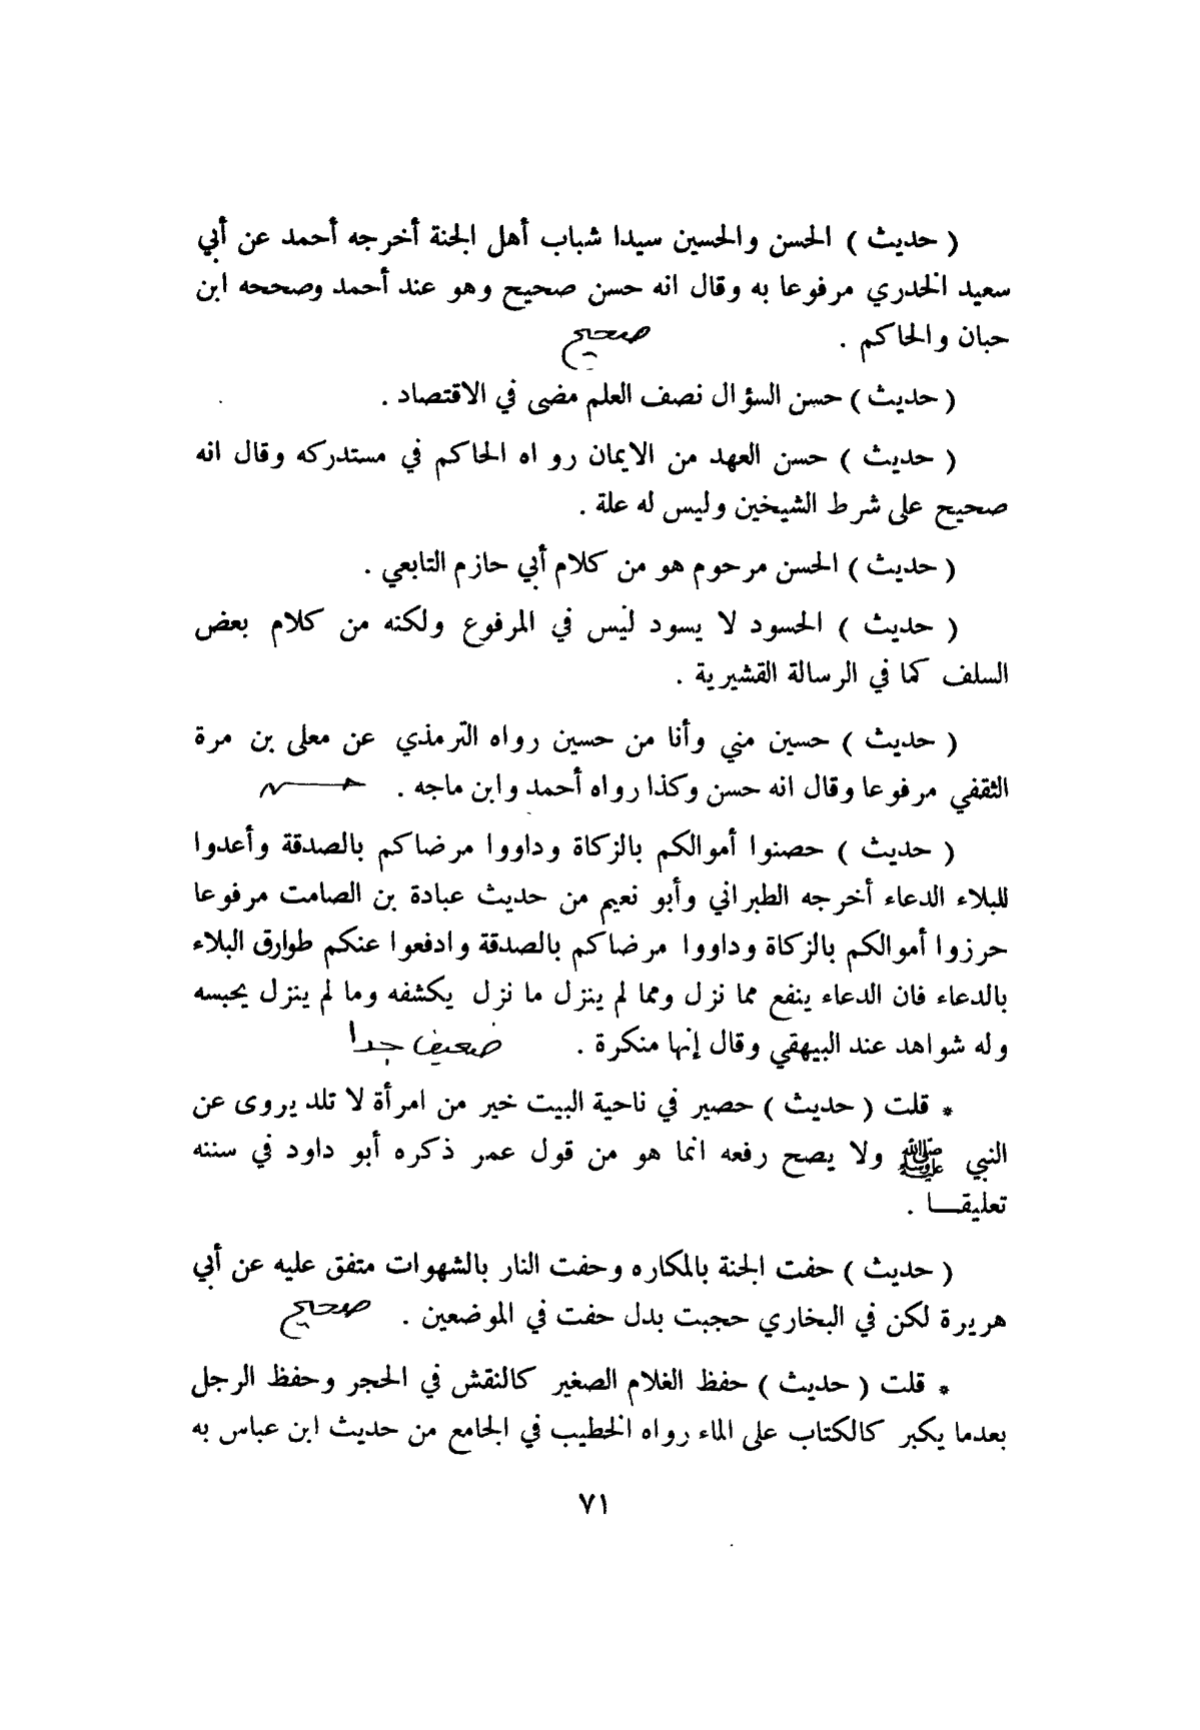 ( حديث ) الحسن والحسين سيدا شباب أهل الجنة أخرجه أحمد عن أبي
سعيد الخدري مرفوعا به وقال انه حسن صحيح وهو عند أحمد وصححه ابن
حبان والحاكم . صحيح
( حديث ) حسن السؤال نصف العلم مضى في الاقتصاد .
( حديث ) حسن العهد من الايمان رواه الحاكم في مستدركه وقال انه
صحيح على شرط الشيخين وليس له علة .
( حديث ) الحسن مرحوم هو من كلام أبي حازم التابعي .
( حديث ) الحسود لا يسود ليس في المرفوع ولكنه من كلام بعض
السلف كما في الرسالة القشيرية .
( حديث ) حسين مني وأنا من حسين رواه الترمذي عن معلى بن مرة
الثقفي مرفوعا وقال انه حسن وكذا رواه أحمد وابن ماجه . حسن
( حديث ) حصنوا أموالكم بالزكاة وداووا مرضاكم بالصدقة وأعدوا
للبلاء الدعاء أخرجه الطبراني وأبو نعيم من حديث عبادة بن الصامت مرفوعا
حرزوا أموالكم بالزكاة وداووا مرضاكم بالصدقة وادفعوا عنكم طوارق البلاء
بالدعاء فان الدعاء ينفع مما نزل ومما لم ينزل ما نزل يكشفه وما لم ينزل يحبسه
وله شواهد عند البيهقي وقال إنها منكرة . ضعيف جدا
* قلت ( حديث ) حصير في ناحية البيت خير من امرأة لا تلد يروى عن
النبي ﷺ ولا يصح رفعه انما هو من قول عمر ذكره أبو داود في سننه
تعليقـــا .
( حديث ) حفت الجنة بالمكاره وحفت النار بالشهوات متفق عليه عن أبي
هريرة لكن في البخاري حجبت بدل حفت في الموضعين . صحيح
* قلت ( حديث ) حفظ الغلام الصغير كالنقش في الحجر وحفظ الرجل
بعدما يكبر كالكتاب على الماء رواه الخطيب في الجامع من حديث ابن عباس به
٧١